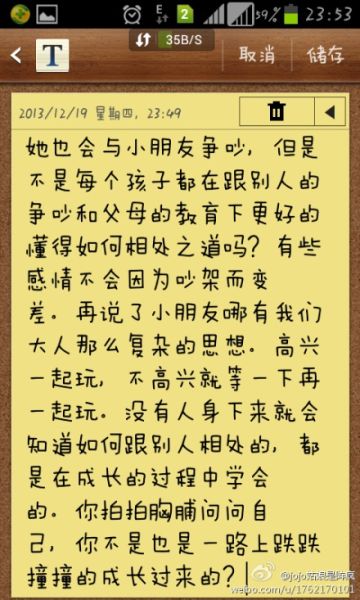 59% 23:53
35B/S
T 取消 储存
2013/12/19 星期四, 23:49
她也会与小朋友争吵，但是
不是每个孩子都在跟别人的
争吵和父母的教育下更好的
懂得如何相处之道吗？有些
感情不会因为吵架而变
差。再说了小朋友哪有我们
大人那么复杂的思想。高兴
一起玩，不高兴就等一下再
一起玩。没有人身下来就会
知道如何跟别人相处的，都
是在成长的过程中学会
的。你拍拍胸脯问问自
己，你不是也是一路上跌跌
撞撞的成长过来的？
weibo.com/u/1762170101